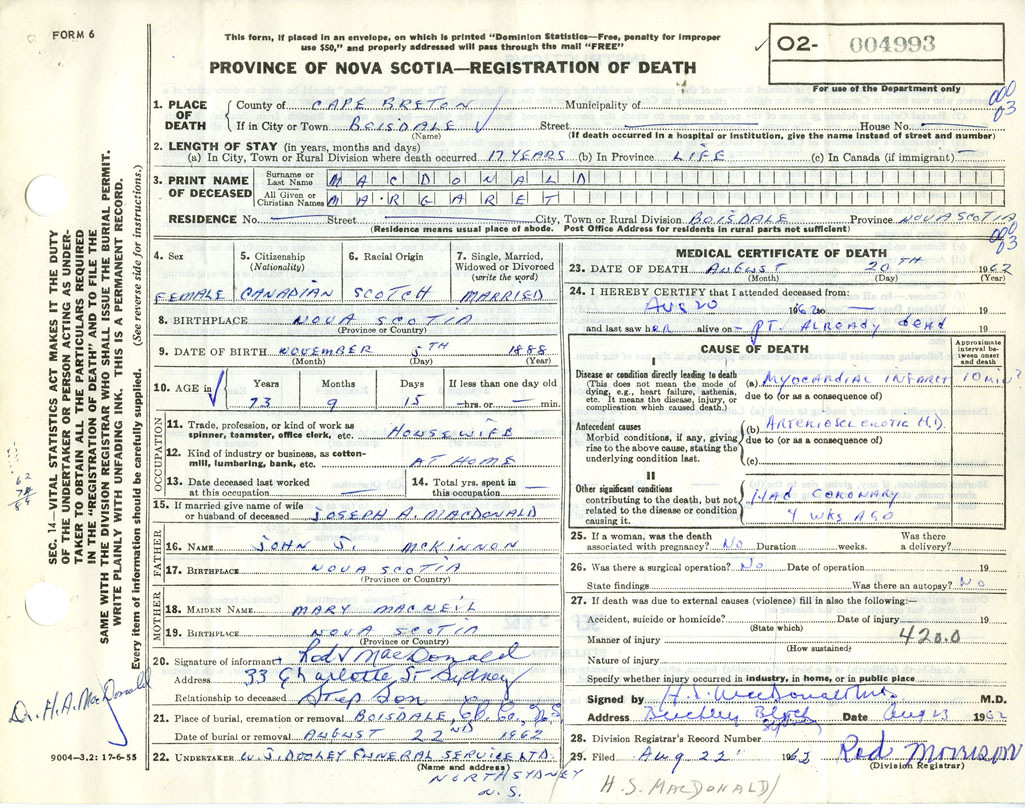 FORM 6
This form, if placed in an envelope, on which is printed "Dominion Statistics—Free, penalty for improper
use $50," and properly addressed will pass through the mail "FREE"
PROVINCE OF NOVA SCOTIA—REGISTRATION OF DEATH
✓ 02- 004993
For use of the Department only
000
03
1. PLACE OF DEATH
County of CAPE BRETON Municipality of
If in City or Town BOISDALE ✓ Street House No.
(Name) (If death occurred in a hospital or institution, give the name instead of street and number)
2. LENGTH OF STAY (in years, months and days)
(a) In City, Town or Rural Division where death occurred 17 YEARS (b) In Province LIFE (c) In Canada (if immigrant) —
3. PRINT NAME OF DECEASED
Surname or Last Name MACDONALD
All Given or Christian Names MARGARET
RESIDENCE No. Street City, Town or Rural Division BOISDALE Province NOVA SCOTIA
(Residence means usual place of abode. Post Office Address for residents in rural parts not sufficient)
000
03
SEC. 14—VITAL STATISTICS ACT MAKES IT THE DUTY
OF THE UNDERTAKER OR PERSON ACTING AS UNDER-
TAKER TO OBTAIN ALL THE PARTICULARS REQUIRED
IN THE "REGISTRATION OF DEATH" AND TO FILE THE
SAME WITH THE DIVISION REGISTRAR WHO SHALL ISSUE THE BURIAL PERMIT.
WRITE PLAINLY WITH UNFADING INK. THIS IS A PERMANENT RECORD.
Every item of information should be carefully supplied. (See reverse side for instructions.)
4. Sex
FEMALE
5. Citizenship
(Nationality)
CANADIAN
6. Racial Origin
SCOTCH
7. Single, Married,
Widowed or Divorced
(write the word)
MARRIED
8. BIRTHPLACE NOVA SCOTIA
(Province or Country)
9. DATE OF BIRTH NOVEMBER 5TH 1888
(Month) (Day) (Year)
10. AGE in ✓
Years Months Days If less than one day old
73 9 15 —hrs. or — min.
OCCUPATION
11. Trade, profession, or kind of work as
spinner, teamster, office clerk, etc. HOUSEWIFE
12. Kind of industry or business, as cotton-
mill, lumbering, bank, etc. AT HOME
13. Date deceased last worked
at this occupation —
14. Total yrs. spent in
this occupation —
15. If married give name of wife
or husband of deceased JOSEPH A. MACDONALD
FATHER
16. NAME JOHN S. MCKINNON
17. BIRTHPLACE NOVA SCOTIA
(Province or Country)
MOTHER
18. MAIDEN NAME. MARY MACNEIL
19. BIRTHPLACE NOVA SCOTIA
(Province or Country)
20. Signature of informant Rod MacDonald
Address 33 Charlotte St Sydney
Relationship to deceased Step Son
21. Place of burial, cremation or removal BOISDALE, C.B. Co., N.S.
Date of burial or removal AUGUST 22ND 1962
22. UNDERTAKER W.J. DOOLEY FUNERAL SERVICE LTD.
(Name and address) NORTH SYDNEY
N.S.
62
Dr. H.A. MacDonald
9004—3.2: 17-6-55
MEDICAL CERTIFICATE OF DEATH
23. DATE OF DEATH AUGUST 20TH 1962
(Month) (Day) (Year)
24. I HEREBY CERTIFY that I attended deceased from:
Aug 20 1962 to — 19
and last saw her alive on — PT. ALREADY dead 19
CAUSE OF DEATH
Approximate
interval be-
tween onset
and death
I
Disease or condition directly leading to death
(This does not mean the mode of
dying, e.g., heart failure, asthenia,
etc. It means the disease, injury, or
complication which caused death.)
(a) MYOCARDIAL INFARCT 10 MIN?
due to (or as a consequence of)
Antecedent causes
Morbid conditions, if any, giving
rise to the above cause, stating the
underlying condition last.
(b) ARTERIOSCLEROTIC H.D.
due to (or as a consequence of)
(c)
II
Other significant conditions
contributing to the death, but not
related to the disease or condition
causing it.
HAD CORONARY
4 WKS AGO
25. If a woman, was the death
associated with pregnancy? No Duration weeks. Was there
a delivery?
26. Was there a surgical operation? No Date of operation 19
State findings Was there an autopsy? No
27. If death was due to external causes (violence) fill in also the following:—
Accident, suicide or homicide? Date of injury 19
(State which)
Manner of injury 420.0
(How sustained)
Nature of injury
Specify whether injury occurred in industry, in home, or in public place
Signed by H.S. MacDonald M.D.
Address Block Sydney Date Aug 23 1962
28. Division Registrar's Record Number
29. Filed Aug 22" 1962 Rod Morrison
(Division Registrar)
H.S. MACDONALD/